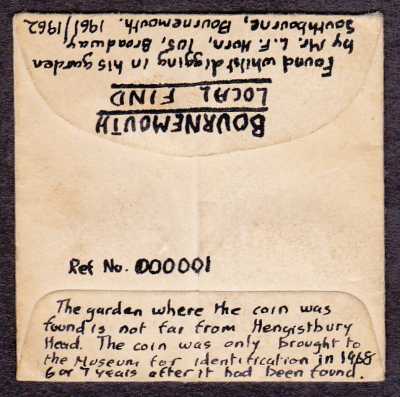 BOURNEMOUTH
LOCAL FIND
Found whilst digging in his garden
by Mr. L. F. Horn, 105, Broadway,
Southbourne, Bournemouth. 1961/1962
Ref No. 000001
The garden where the coin was
found is not far from Hengistbury
Head. The coin was only brought to
the Museum for identification in 1968
6 or 7 years after it had been found.